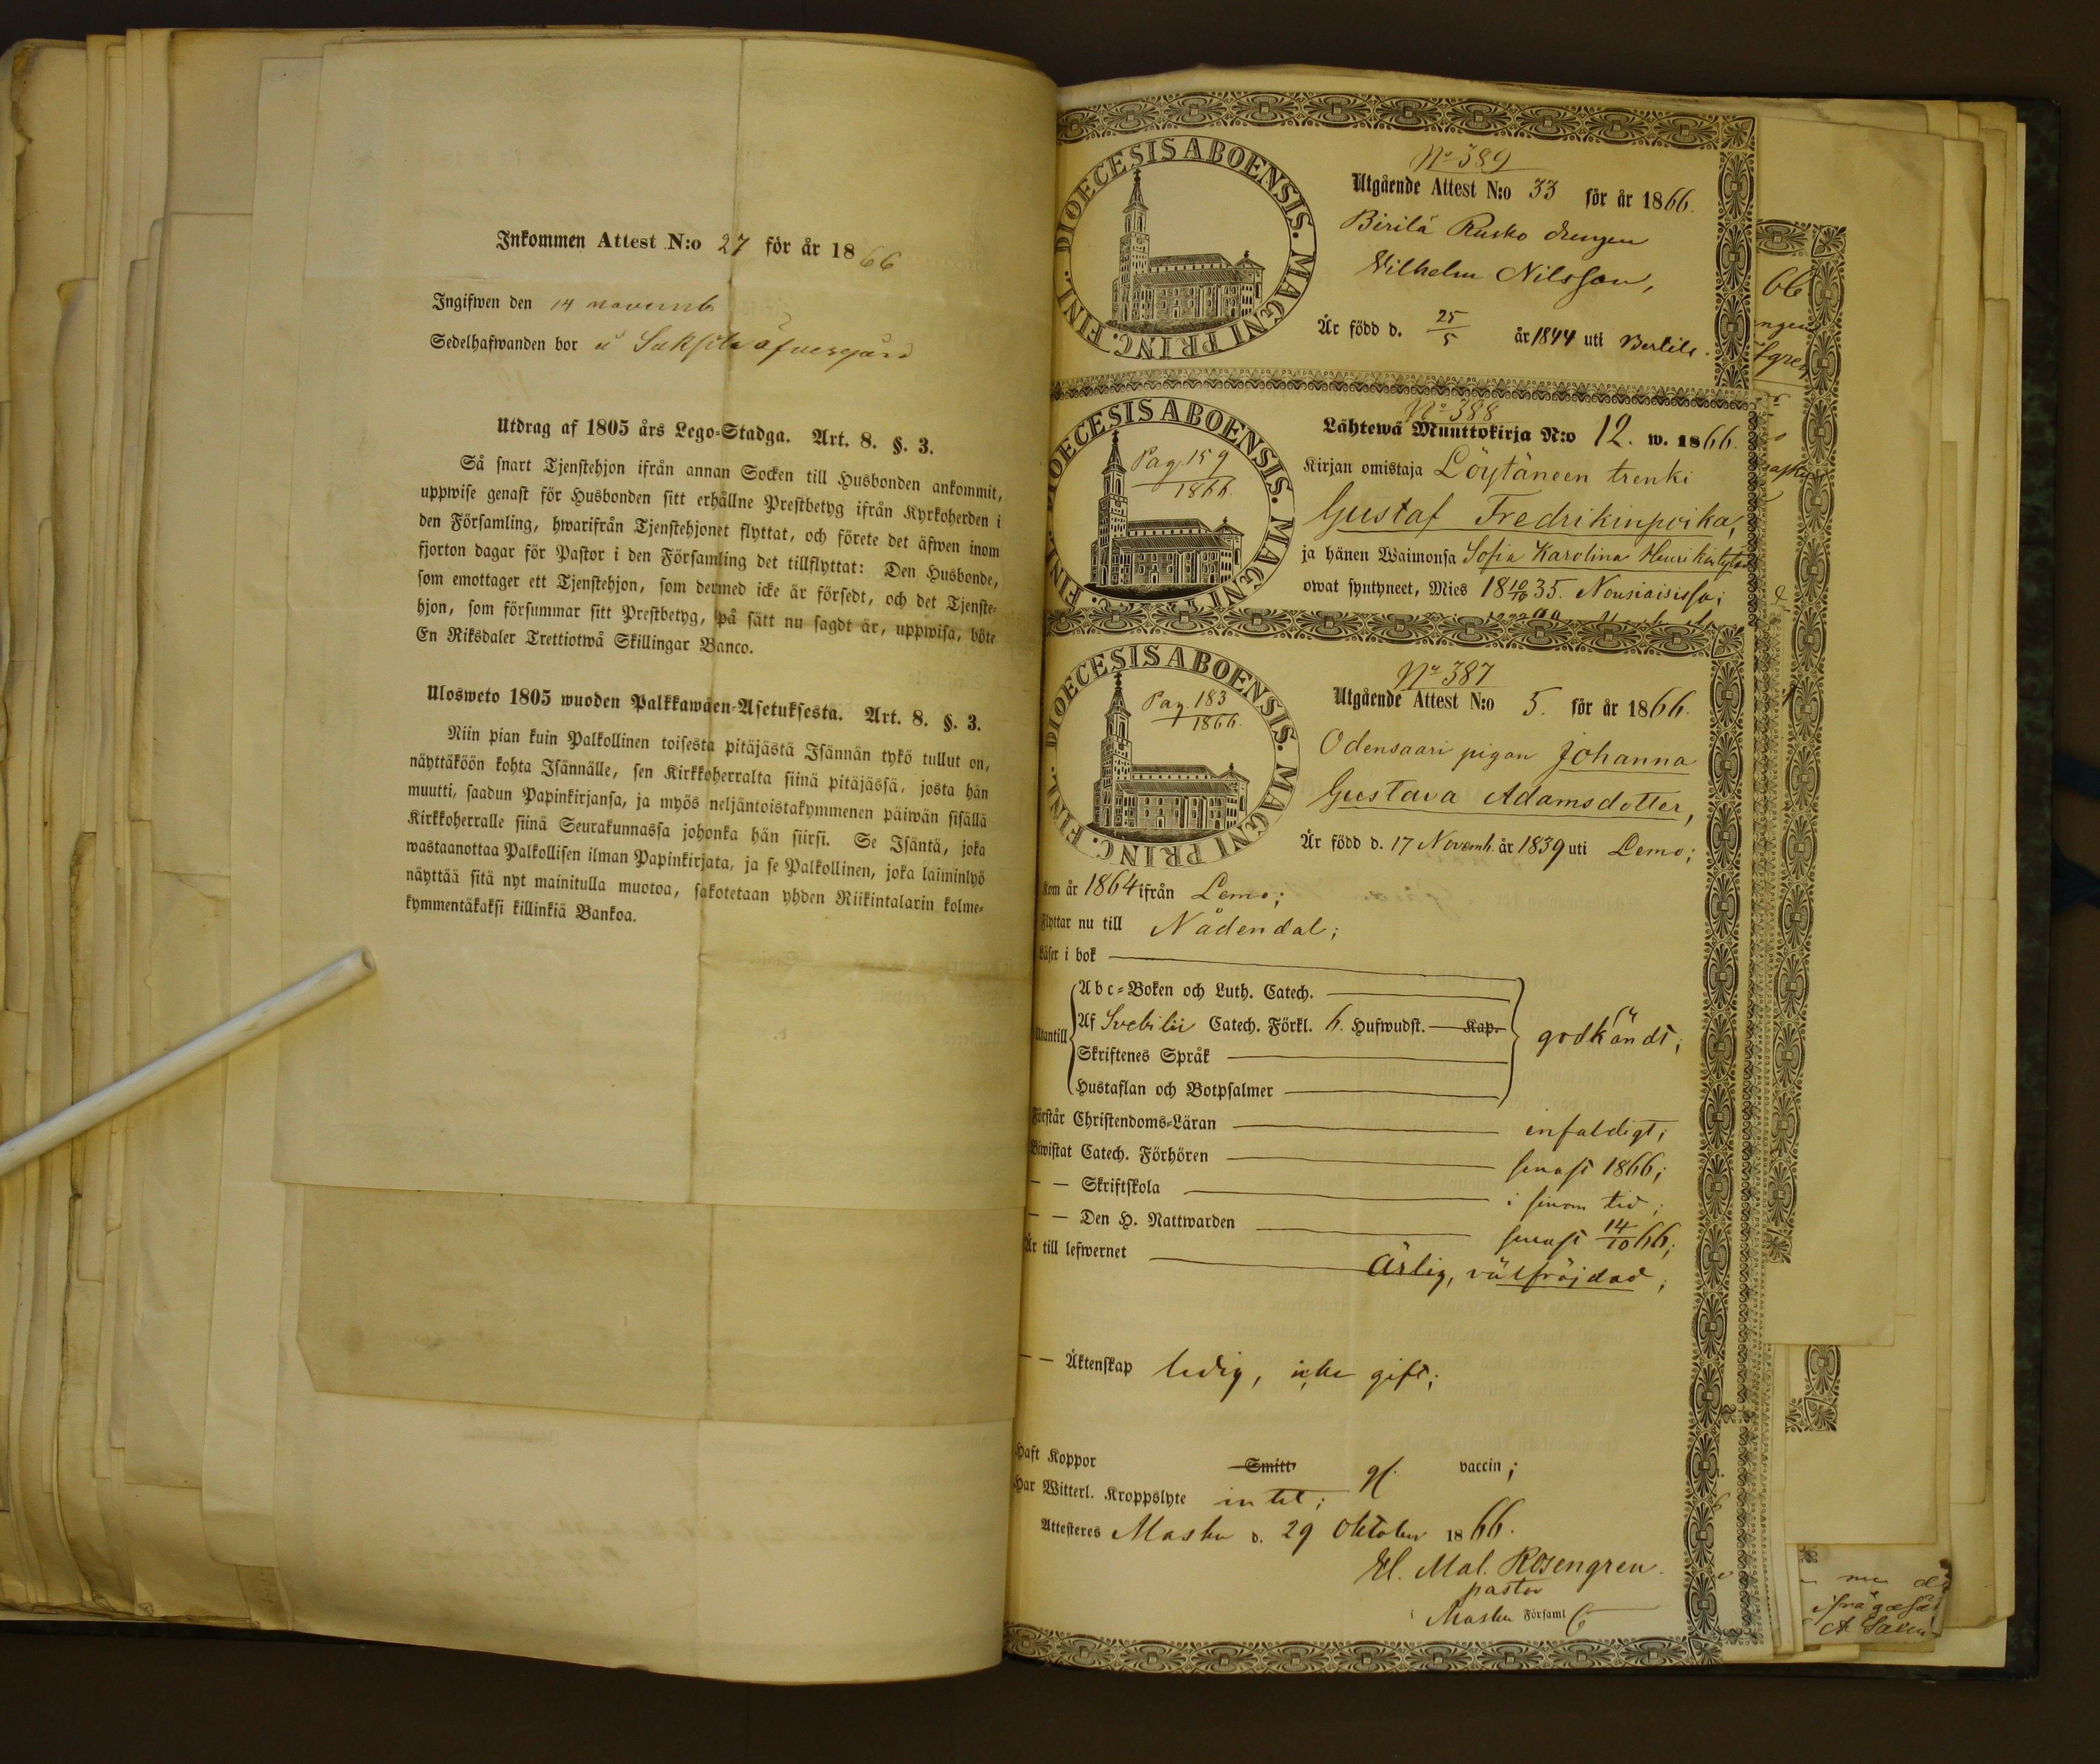 Inkommen Attest N:o 27 för år 1866
Ingifwen den 14 novemb
Sedelhafwanden bor å
Utdrag af 1805 års Lego-Stadga. Art. 8. §. 3.
Så snart Tjenstehjon ifrån annan Socken till Husbonden ankommit,
uppwise genast för Husbonden sitt erhållne Prestbetyg ifrån Kyrkoherden i
den Församling, hwarifrån Tjenstehjonet flyttat, och förete det äfwen inom
fjorton dagar för Pastor i den Församling det tillflyttat: Den Husbonde,
som emottager ett Tjenstehjon, som dermed icke är försedt, och det Tjenste-
hjon, som försummar sitt Prestbetyg, på sätt nu sagdt är, uppwisa, böte
En Riksdaler Trettiotwå Skillingar Banco.
Ulosweto 1805 wuoden Palkkawäen-Asetuksesta. Art. 8. §. 3.
Niin pian kuin Palkollinen toisesta pitäjästä Isännän tykö tullut on,
näyttäköön kohta Isännälle, sen Kirkkoherralta siinä pitäjässä, josta hän
muutti, saadun Papinkirjansa, ja myös neljäntoistakymmenen päiwän sisällä
Kirkkoherralle siinä Seurakunnassa johonka hän siirsi. Se Isäntä, joka
wastaanottaa Palkollisen ilman Papinkirjata, ja se Palkollinen, joka laiminlyö
näyttää sitä nyt mainitulla muotoa, sakotetaan yhden Riikintalarin kolme-
kymmentäkaksi killinkiä Bankoa.
DIOECESIS ABOENSIS. MAGNI PRINC. FINL.
No 389
Utgående Attest N:o 33 för år 1866.
Birilä Rusko drengen
Wilhelm Nilsson,
Är född d. 25/5 år 1844 uti Bertils.
66
DIOECESIS ABOENSIS. MAGNI FINL.
Pag. 159
1866.
No 388
Lähtewä Muuttokirja N:o 12. w. 1866.
Kirjan omistaja Löytäneen trenki
Gustaf Fredrikinpoika,
ja hänen Waimonsa Sofia Karolina
owat syntyneet, Mies 18 10/10 35. Nousiaisissa;
DIOECESIS ABOENSIS. MAGNI PRINC. FINL.
Pag 183
1866.
No 387
Utgående Attest N:o 5. för år 1866.
Odensaari pigan Johanna
Gustava Adamsdotter,
Är född d. 17 Novemb. år 1839 uti Lemo;
Kom år 1864 ifrån Lemo;
Flyttar nu till Nådendal;
Läser i bok
Utantill
Abc-Boken och Luth. Catech.
Af Svebilii Catech. Förkl. 6. Hufwudst. Kap.
Skriftenes Språk
Hustaflan och Botpsalmer
godkändt;
Förstår Christendoms-Läran enfaldigt;
Biwistat Catech. Förhören senast 1866;
— — Skriftskola i sinom tid;
— — Den H. Nattwarden senast 14/10 66;
Är till lefwernet Ärlig, välfräjdad;
— — Äktenskap ledig, icke gift;
Haft Koppor Smitt vaccin;
Har Witterl. Kroppslyte intet;
Attesteres Masku d. 29 Oktober 1866.
El. Mal. Rosengren.
pastor
i Masku Församl